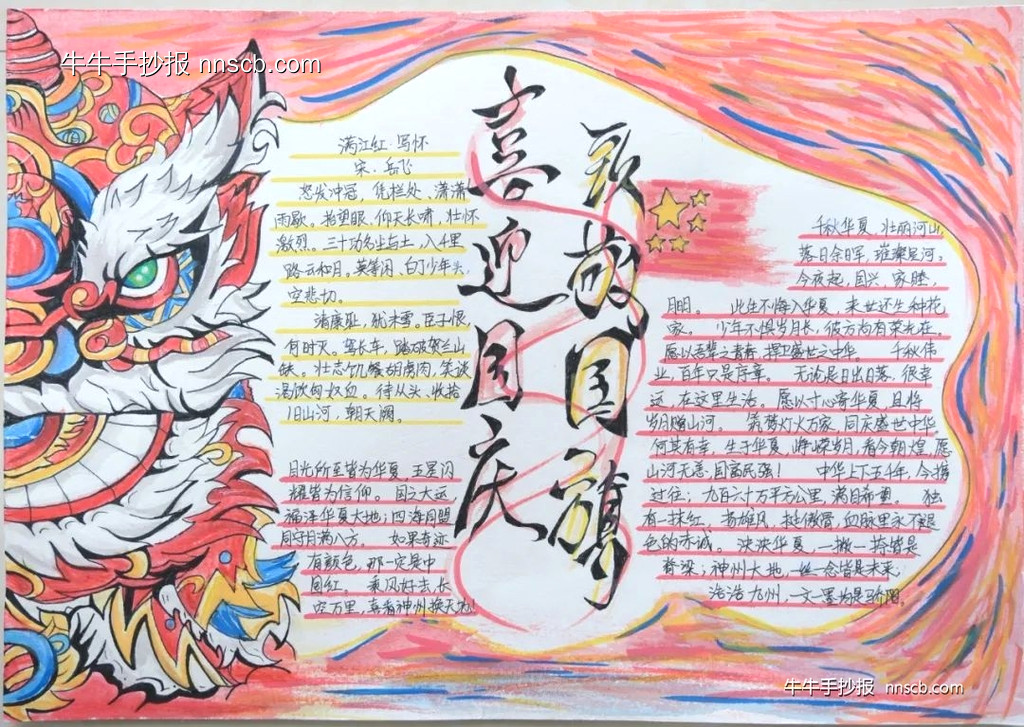 牛牛手抄报 nnscb.com
喜迎国庆
致敬国旗
满江红·写怀
宋·岳飞
怒发冲冠，凭栏处、潇潇
雨歇。抬望眼、仰天长啸，壮怀
激烈。三十功名尘与土，八千里
路云和月。莫等闲、白了少年头，
空悲切。
靖康耻，犹未雪。臣子恨，
何时灭。驾长车，踏破贺兰山
缺。壮志饥餐胡虏肉，笑谈
渴饮匈奴血。待从头、收拾
旧山河，朝天阙。
目光所至皆为华夏，五星闪
耀皆为信仰。 国之大运，
福泽华夏大地；四海同盟
同守月满八方。 如果奇迹
有颜色，那一定是中
国红。 乘风好去，长
空万里，直看神州换天地！
千秋华夏，壮丽河山，
落日余晖，璀璨星河。
今夜起，国兴，家睦，
月明。 此生不悔入华夏，来世还生种花
家。 少年不惧岁月长，彼方尚有荣光在。
愿以吾辈之青春，捍卫盛世之中华。 千秋伟
业，百年只是序章。 无论是日出日落，很幸
运，在这里生活。 愿以寸心寄华夏，且将
岁月赠山河。 筑梦灯火万家，同庆盛世中华。
何其有幸，生于华夏，峥嵘岁月，看今朝煌，愿
山河无恙，国富民强！ 中华上下五千年，今携
过往；九百六十万平方公里，满目希望。 独
有一抹红，扬雄风，挺傲骨，血脉里永不褪
色的赤诚。 泱泱华夏，一撇一捺皆是
脊梁；神州大地，一丝一念皆是未来，
浩浩九州，一文一墨均是骄阳。
牛牛手抄报 nnscb.com